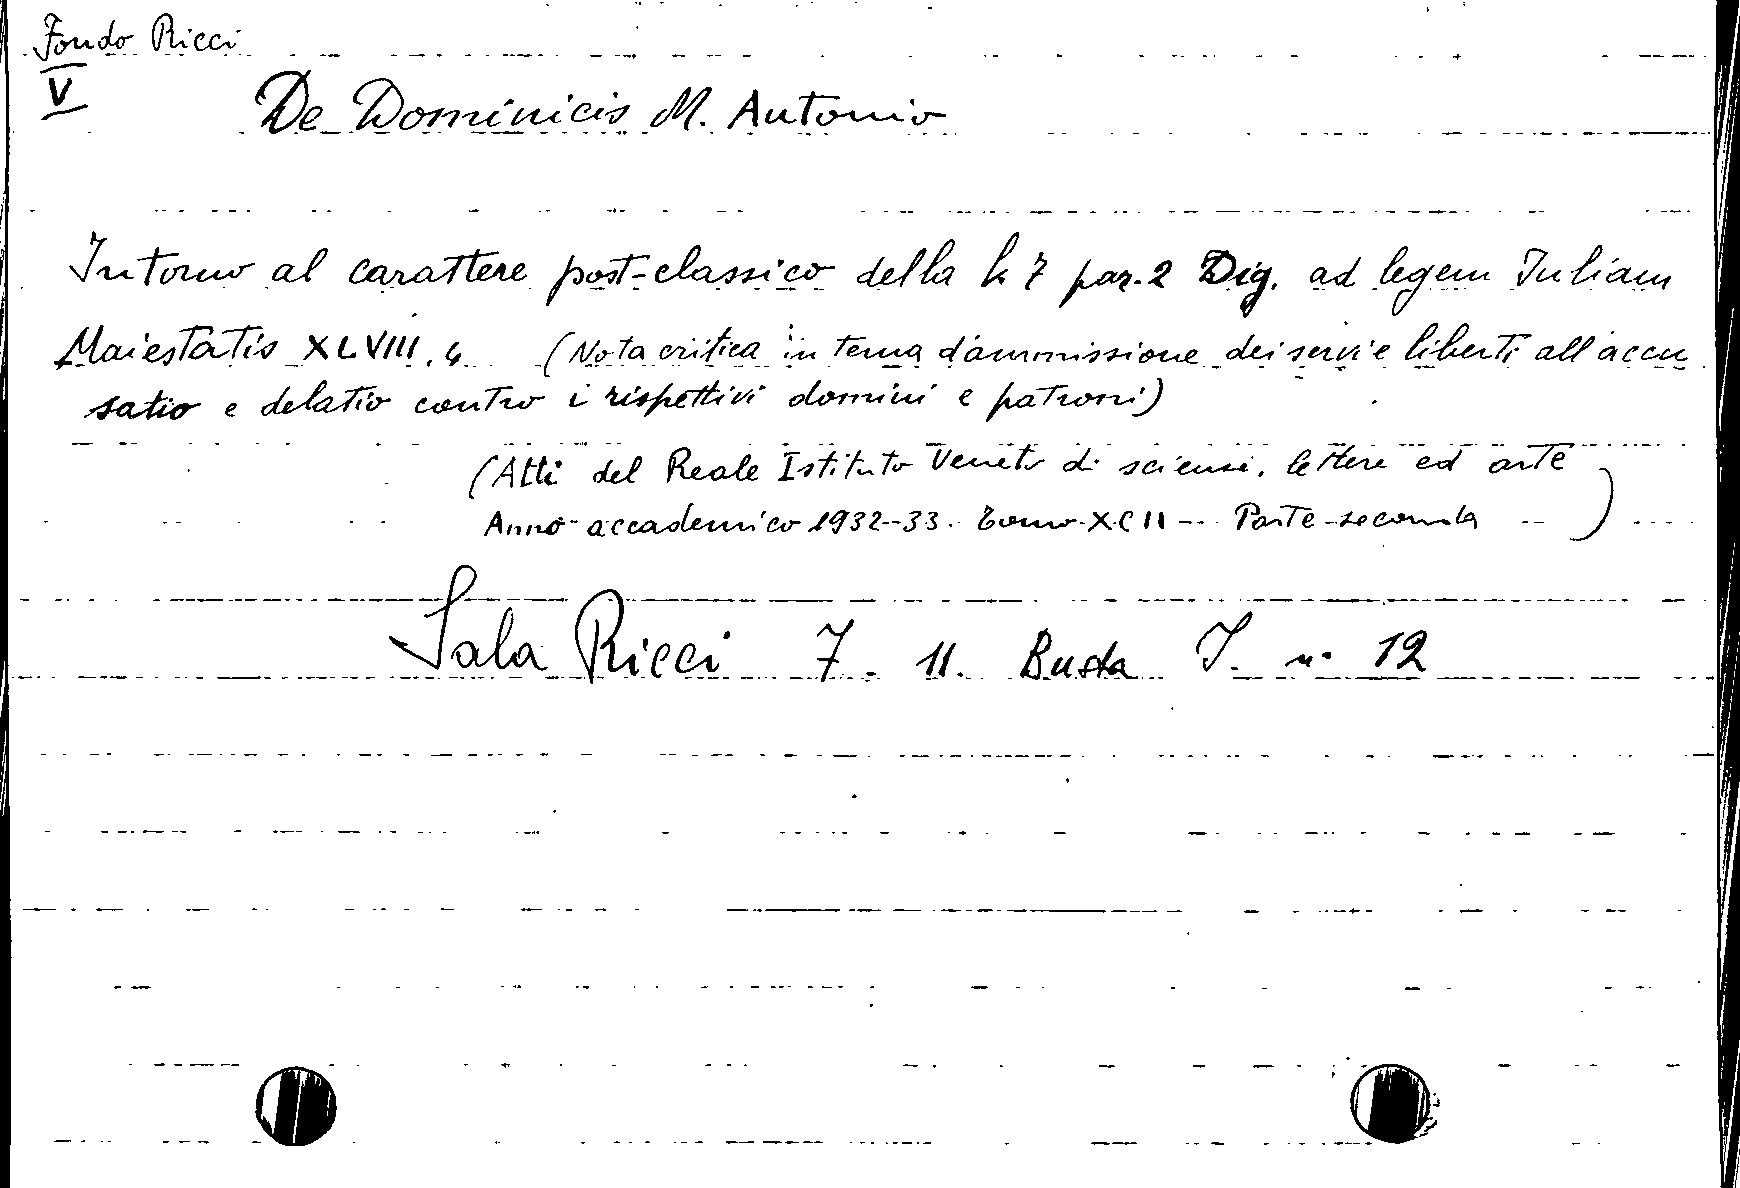 Fondo Ricci
V
De Dominicis M. Antonio
Intorno al carattere post-classico della L 7 par. 2 Dig. ad legem Iuliam
Maiestatis XLVIII. 4 (Nota critica in tema d'ammissione dei servi e liberti all'accu
satio e delatio contro i rispettivi domini e patroni)
(Atti del Reale Istituto Veneto di scienze, lettere ed arte
Anno accademico 1932-33. Tomo XCII - Parte seconda)
Sala Ricci 7. 11. Busta I. n. 12